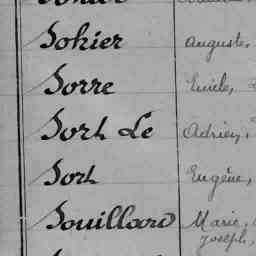 Sohier Auguste,
Sorre Emile,
Sort Le Adrien,
Sort Eugène,
Souillard Marie,
Joseph,